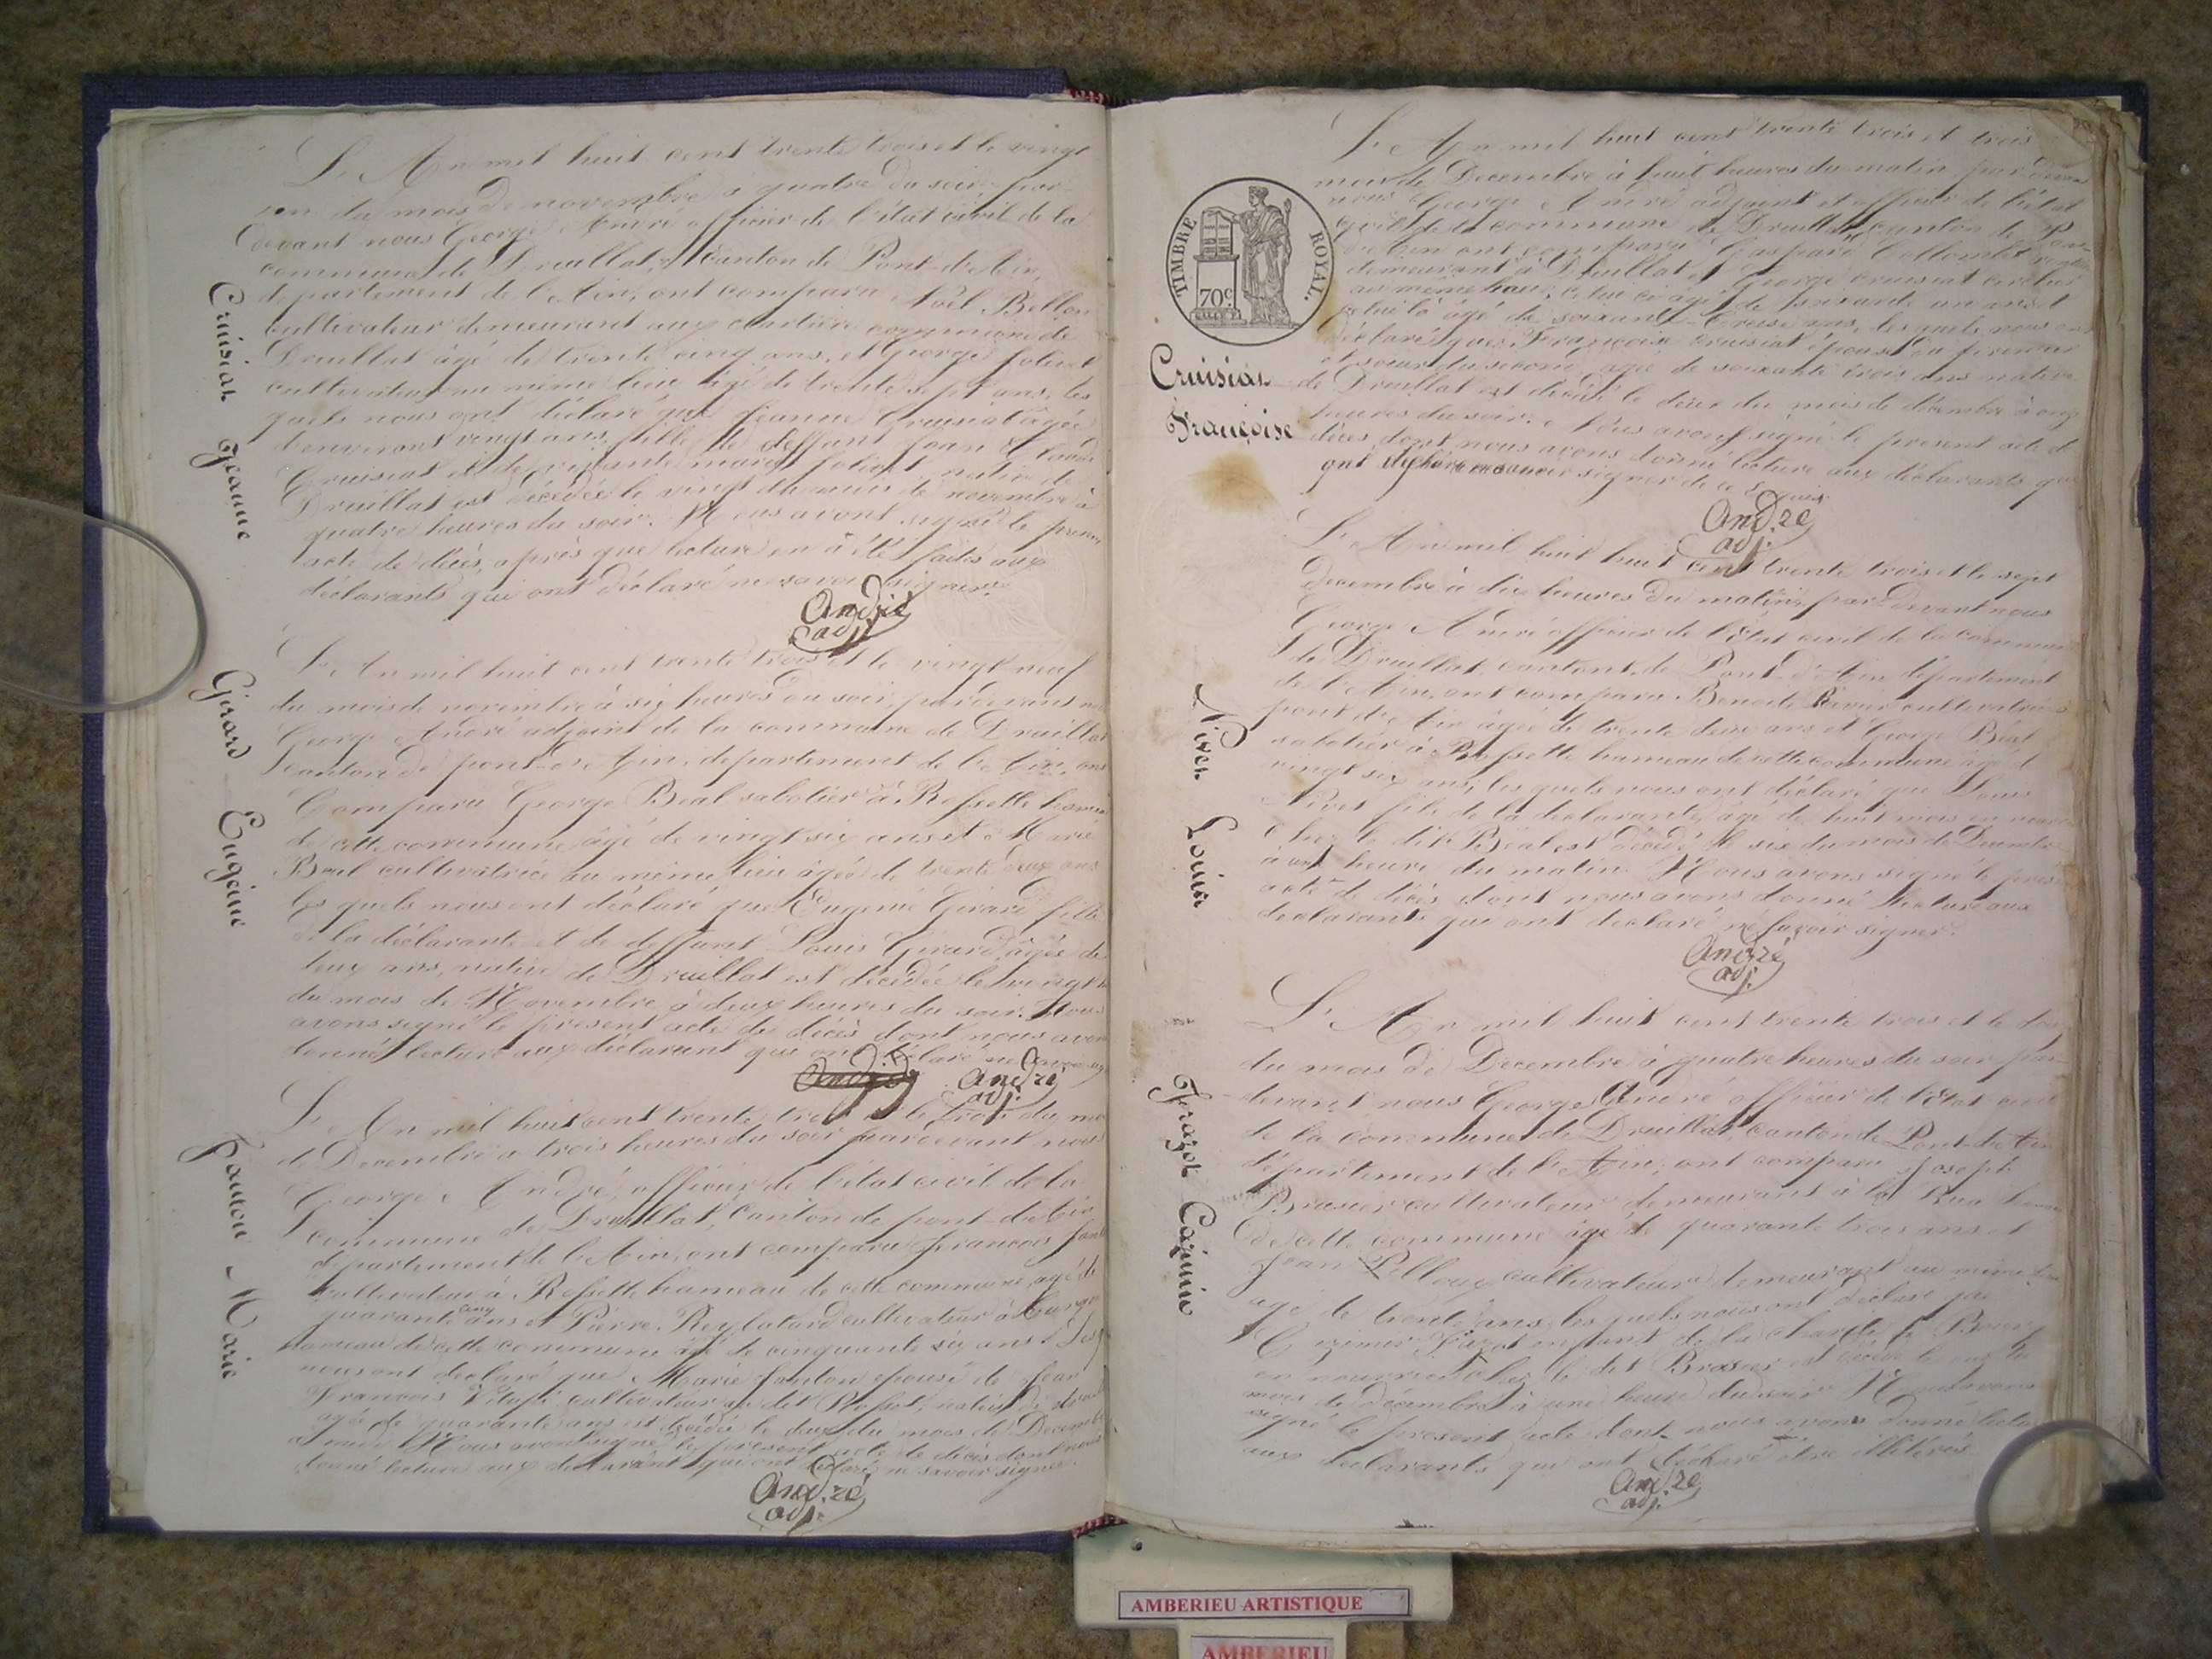 L'An mil huit cent trente trois et le vingt
un du mois de novembre à quatre du soir par
devant nous George André officier de l'état civil de la
commune de Druillat, canton de Pont-d'Ain,
departement de l'Ain, ont comparu Noël Bellon
cultivateur demeurant aux commune de
Druillat âgé de trente cinq ans, et George
cultivateur au même lieu âgé de trente sept ans, les
quels nous ont déclaré que Jeanne Cruisiat âgée
d'environt vingt ans, fille de deffunt Jean Claude
Cruisiat et de vivante native de
Druillat est décédée le vingt du mois de novembre à
quatre heures du soir. Nous avons signé le présent
acte de décès, après que lecture en a été faite aux
déclarants qui ont déclaré ne savoir signer.
André
adj.
Cruisiat Jeanne
L'An mil huit cent trente trois et le vingt neuf
du mois de novembre à six heures du soir, pardevant nous
George André adjoint de la commune de Druillat
canton de pont-d'Ain, departement de l'Ain, ont
Comparu George Béal sabotier à Rossette hameau
de cette commune âgé de vingt six ans et Marie
Béal cultivatrice au même lieu âgée de trente deux ans
les quels nous ont déclaré que Eugenie Girard fille
de la déclarante et de deffunt Louis Girard, âgée de
deux ans, native de Druillat est décédée le vingt
du mois de Novembre à deux heures du soir. Nous
avons signé le présent acte de décès dont nous avons
donné lecture aux déclarant qui ont déclaré ne savoir
André
adj.
Girard Eugénie
L'An mil huit cent trente trois et le trois du mois
de Decembre à trois heures du soir pardevant nous
George André, officier de l'état civil de la
Commune de Druillat, canton de pont-d'Ain
departement de l'Ain, ont comparu francois
cultivateur à Rossette hameau de cette commune, âgé de
quarante cinq ans et Pierre cultivateur à
hameau de cette commune âgé de cinquante six ans
nous ont déclaré que Marie fanton epouse de Jean
Francois cultivateur au dit Rosset, native de
âgée de quarante ans est décédée le deux du mois de Decembre
à midi Nous avons signé le présent acte de décès dont nous
donné lecture aux déclarant qui ont déclaré ne savoir signer.
André
adj.
fanton Marie
TIMBRE ROYAL.
70c
L'An mil huit cent trente trois et trois
mois de Decembre à huit heures du matin par devant
nous George André adjoint et officier de l'état
civil de la commune de Druillat canton de Pont
d'Ain ont comparu Gaspard Collombet
demeurant à Druillat et George Cruisiat
au même lieu, celui ci âgé de soixante un ans et
celui là âgé de soixante treize ans, les quels nous ont
déclaré que Françoise Cruisiat épouse du premier
et soeur du second âgée de soixante trois ans native
de Druillat est décédé le deux du mois de décembre à onze
heures du soir. Nous avons signé le present acte de
décès, dont nous avons donné lecture aux déclarants qui
ont signer de ce
André
adj.
Cruisiat
Françoise
L'An mil huit huit cent trente trois et le sept
Decembre à dix heures du matin par devant nous
George André officier de l'état civil de la commune
de Druillat, canton de Pont-d'Ain département
de l'Ain, ont comparu Benoite cultivatrice
pont d'Ain âgée de trente deux ans et George Béal
sabotier à Rossette hameau de cette commune âgé de
vingt six ans, les quels nous ont déclaré que Louis
Nivet fils de la declarante, âgé de huit mois en
Chez le dit Béal est décédé le six du mois de Decembre
à une heure du matin. Nous avons signé le présent
acte de décès dont nous avons donné lecture aux
declarants qui ont declaré ne savoir signer.
André
adj.
Nivet Louis
L'An mil huit cent trente trois et le
du mois de Decembre à quatre heures du soir par
devant nous George André officier de l'état civil
de la commune de Druillat, canton de Pont-d'Ain
département de l'Ain, ont comparu Joseph
Brasier cultivateur demeurant à la Rua hameau
de cette commune âgé de quarante trois ans et
Jean cultivateur demeurant au même lieu
âgé de trente ans, les quels nous ont déclaré que
enfant de la charité de Bourg
en nourrice chez le dit Brasier est décédé le onze du
mois de décembre à une heure du soir Nous avons
signé le present acte dont nous avons donné lecture
aux declarants qui ont declaré être illitérés
André
adj.
AMBERIEU ARTISTIQUE
AMBERIEU